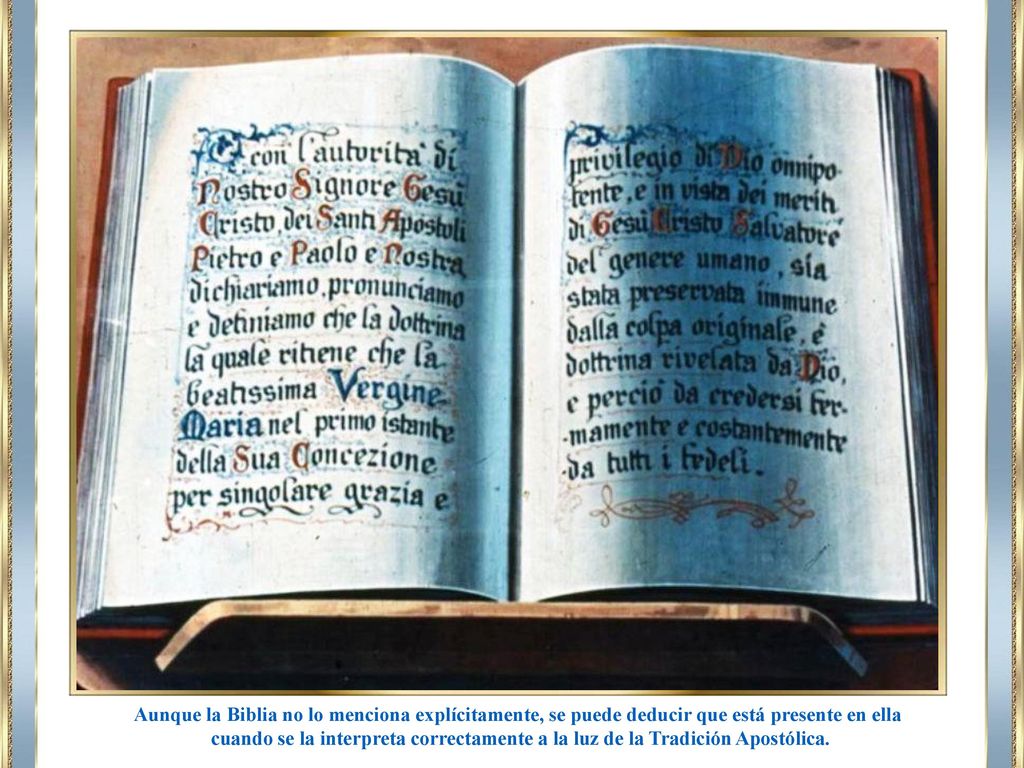 E con l'autorita' di
Nostro Signore Gesù
Cristo, dei Santi Apostoli
Pietro e Paolo e Nostra,
dichiariamo, pronunciamo
e definiamo che la dottrina
la quale ritiene che la
beatissima Vergine
Maria nel primo istante
della Sua Concezione
per singolare grazia e
privilegio di Dio onnipo-
tente, e in vista dei meriti
di Gesù Cristo Salvatore
del genere umano, sia
stata preservata immune
dalla colpa originale, è
dottrina rivelata da Dio,
e perciò da credersi fer-
mamente e costantemente
da tutti i fedeli.
Aunque la Biblia no lo menciona explícitamente, se puede deducir que está presente en ella
cuando se la interpreta correctamente a la luz de la Tradición Apostólica.